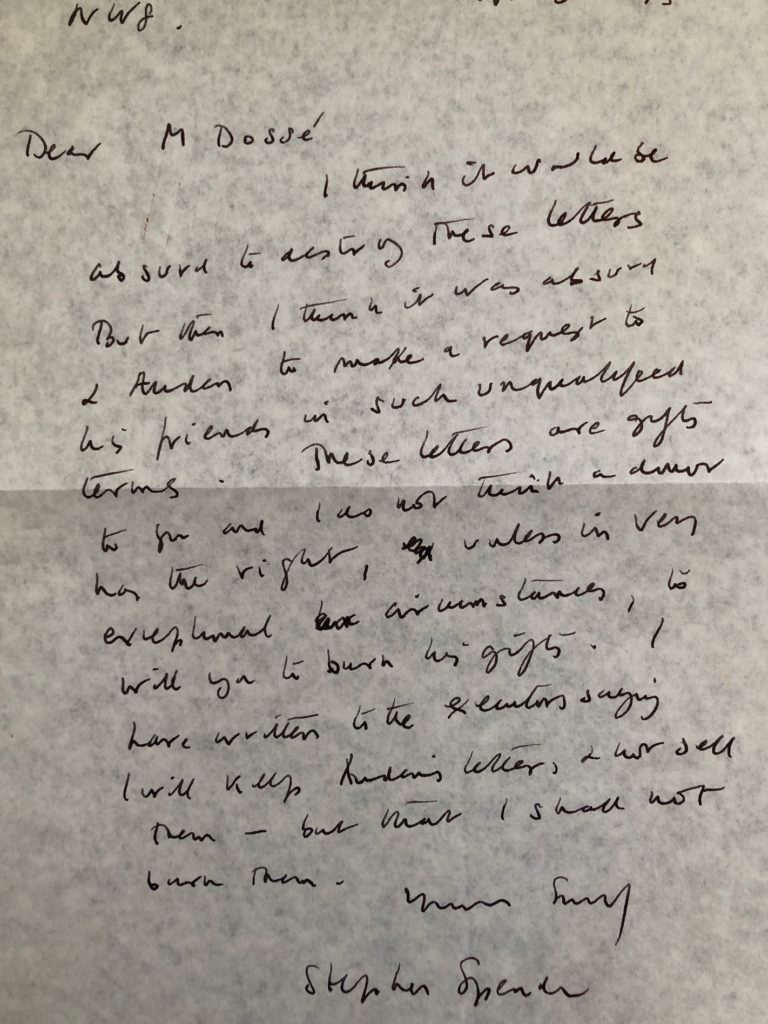 NW8.
Dear M Dossé
I think it would be
absurd to destroy these letters
But then I think it was absurd
of Auden to make a request to
his friends in such unqualified
terms. These letters are gifts
to you and I do not think a donor
has the right, unless in very
exceptional circumstances, to
will you to burn his gifts. I
have written to the executors saying
I will keep Auden's letters, & not sell
them – but that I shall not
burn them.
Yours
Stephen Spender